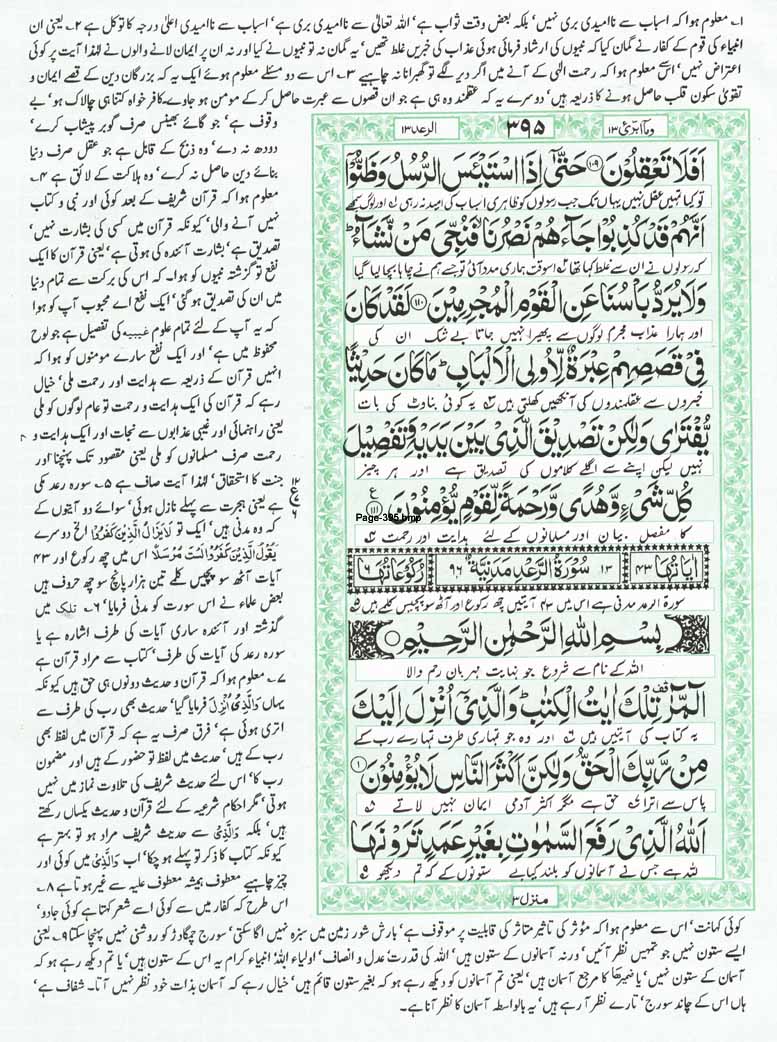 ۱۔ معلوم ہوا کہ اسباب سے ناامیدی بری نہیں، بلکہ بعض وقت ثواب ہے، اللہ تعالیٰ سے ناامیدی بری ہے، اسباب سے ناامیدی اعلیٰ درجہ کا توکل ہے ۲۔ یعنی ان
انبیاء کی قوم کے کفار نے گمان کیا کہ نبیوں کی ارشاد فرمائی ہوئی عذاب کی خبریں غلط تھیں، یہ گمان نہ تو نبیوں نے کیا اور نہ ان پر ایمان لانے والوں نے لہٰذا آیت پر کوئی
اعتراض نہیں، اس سے معلوم ہوا کہ رحمت الٰہی کے آنے میں اگر دیر لگے تو گھبرانا نہ چاہیے ۳۔ اس سے دو مسئلے معلوم ہوئے ایک یہ کہ بزرگان دین کے قصے ایمان و
تقویٰ سکون قلب حاصل ہونے کا ذریعہ ہیں، دوسرے یہ کہ عقلمند وہ ہی ہے جو ان قصوں سے عبرت حاصل کر کے مومن ہو جاوے، کافر خواہ کتنا ہی چالاک ہو، بے
وقوف ہے، جو گائے بھینس صرف گوبر پیشاب کرے،
دودھ نہ دے، وہ ذبح کے قابل ہے جو عقل صرف دنیا
بنائے دین حاصل نہ کرے، وہ ہلاکت کے لائق ہے ۴۔
معلوم ہوا کہ قرآن شریف کے بعد کوئی اور نبی و کتاب
نہیں آنے والی، کیونکہ قرآن میں کسی کی بشارت نہیں،
تصدیق ہے، بشارت آئندہ کی ہوتی ہے، یعنی قرآن کا ایک
نفع تو گزشتہ نبیوں کو ہوا۔ کہ اس کی برکت سے تمام دنیا
میں ان کی تصدیق ہو گئی، ایک نفع اے محبوب آپ کو ہوا
کہ یہ آپ کے لئے تمام علوم غیبیہ کی تفصیل ہے جو لوح
محفوظ میں ہے، اور ایک نفع سارے مومنوں کو ہوا کہ
انہیں قرآن کے ذریعہ سے ہدایت اور رحمت ملی، خیال
رہے کہ قرآن کی ایک ہدایت و رحمت تو عام لوگوں کو ملی
یعنی راہنمائی اور غیبی عذابوں سے نجات اور ایک ہدایت و
رحمت صرف مسلمانوں کو ملی یعنی مقصود تک پہنچنا اور
جنت کا استحقاق، لہٰذا آیت صاف ہے ۵۔ سورہ رعد مکی
ہے یعنی ہجرت سے پہلے نازل ہوئی، سوائے دو آیتوں کے
کہ وہ مدنی ہیں، ایک تو لَا يَزَالُ الَّذِينَ كَفَرُوا الخ دوسرے
يَقُولُ الَّذِينَ كَفَرُوا لَسْتَ مُرْسَلًا اس میں چھ رکوع اور ۴۳
آیات آٹھ سو پچپن کلمے تین ہزار پانچ سو چھ حروف ہیں
بعض علماء نے اس سورت کو مدنی فرمایا، ۶۔ تلک میں
گذشتہ اور آئندہ ساری آیات کی طرف اشارہ ہے یا
سورہ رعد کی آیات کی طرف، کتاب سے مراد قرآن ہے
۷۔ معلوم ہوا کہ قرآن و حدیث دونوں ہی حق ہیں کیونکہ
یہاں وَالَّذِي أُنْزِلَ فرمایا گیا، حدیث بھی رب کی طرف سے
اتری ہوئی ہے، فرق صرف یہ ہے کہ قرآن میں لفظ بھی
رب کے ہیں، حدیث میں لفظ تو حضور کے ہیں اور مضمون
رب کا، اس لئے حدیث شریف کی تلاوت نماز میں نہیں
ہوتی، مگر احکام شرعیہ کے لئے قرآن و حدیث یکساں رکھتے
ہیں، بلکہ وَالَّذِي سے حدیث شریف مراد ہو تو بہتر ہے
کیونکہ کتاب کا ذکر تو پہلے ہو چکا، اب وَالَّذِي میں کوئی اور
چیز چاہیے معطوف ہمیشہ معطوف علیہ سے غیر ہوتا ہے ۸۔
اس طرح کہ کفار میں سے کوئی اسے شعر کہتا ہے کوئی جادو،
کوئی کہانت، اس سے معلوم ہوا کہ مؤثر کی تاثیر متاثر کی قابلیت پر موقوف ہے، بارش شور زمین میں سبزہ نہیں اگا سکتی، سورج چمگادڑ کو روشنی نہیں پہنچا سکتا ۹۔ یعنی
ایسے ستون نہیں جو تمہیں نظر آئیں، ورنہ آسمانوں کے ستون ہیں، اللہ کی قدرت عدل و انصاف، اولیاء اللہ انبیاء کرام یہ اس کے ستون ہیں، یا تم دیکھ رہے ہو کہ
آسمان کے ستون نہیں، یا ضمیر ھَا کا مرجع آسمان ہیں، یعنی تم آسمانوں کو دیکھ رہے ہو کہ بغیر ستون قائم ہیں، خیال رہے کہ آسمان بذات خود نظر نہیں آتا۔ شفاف ہے،
ہاں اس کے چاند سورج، تارے نظر آ رہے ہیں، یہ بالواسطہ آسمان کا نظر آنا ہے۔
وما ابرئ ۱۳
۳۹۵
الرعد ۱۳
اَفَلَا تَعْقِلُوْنَ ۱۰۹ حَتّٰۤى اِذَا اسْتَيْـَٔسَ الرُّسُلُ وَظَنُّوْۤا
تو کیا تمہیں عقل نہیں یہاں تک جب رسولوں کو ظاہری اسباب کی امید نہ رہی اور لوگ سمجھے
اَنَّهُمْ قَدْ كُذِبُوْا جَآءَهُمْ نَصْرُنَا فَنُجِّىَ مَنْ نَّشَآءُ
کہ رسولوں نے ان سے غلط کہا تھا اس وقت ہماری مدد آئی تو جسے ہم نے چاہا بچا لیا گیا
وَلَا يُرَدُّ بَاْسُنَا عَنِ الْقَوْمِ الْمُجْرِمِيْنَ ۱۱۰ لَقَدْ كَانَ
اور ہمارا عذاب مجرم لوگوں سے پھیرا نہیں جاتا بے شک ان کی
فِىْ قَصَصِهِمْ عِبْرَةٌ لِّاُولِى الْاَلْبَابِ مَا كَانَ حَدِيْثًا
خبروں سے عقلمندوں کی آنکھیں کھلتی ہیں یہ کوئی بناوٹ کی بات
يُّفْتَرٰى وَلٰكِنْ تَصْدِيْقَ الَّذِىْ بَيْنَ يَدَيْهِ وَتَفْصِيْلَ
نہیں لیکن اپنے سے اگلے کلاموں کی تصدیق ہے اور ہر چیز
كُلِّ شَىْءٍ وَّهُدًى وَّرَحْمَةً لِّقَوْمٍ يُّؤْمِنُوْنَ ۱۱۱
Page-395.bmp
کا مفصل بیان اور مسلمانوں کے لئے ہدایت اور رحمت
اٰيَاتُهَا ۴۳ ۱۳ سُوْرَةُ الرَّعْدِ مَدَنِيَّةٌ ۹۶ رُكُوْعَاتُهَا ۶
سورۃ الرعد مدنی ہے اس میں ۴۳ آیتیں چھ رکوع اور آٹھ سو پچپن کلمے ہیں
بِسْمِ اللّٰهِ الرَّحْمٰنِ الرَّحِيْمِ
اللہ کے نام سے شروع جو نہایت مہربان رحم والا
الٓمّٓرٰ تِلْكَ اٰيٰتُ الْكِتٰبِ وَالَّذِىْۤ اُنْزِلَ اِلَيْكَ
یہ کتاب کی آیتیں ہیں اور وہ جو تمہاری طرف تمہارے رب کے
مِنْ رَّبِّكَ الْحَقُّ وَلٰكِنَّ اَكْثَرَ النَّاسِ لَا يُؤْمِنُوْنَ ۱
پاس سے اترا حق ہے مگر اکثر آدمی ایمان نہیں لاتے
اَللّٰهُ الَّذِىْ رَفَعَ السَّمٰوٰتِ بِغَيْرِ عَمَدٍ تَرَوْنَهَا
اللہ ہے جس نے آسمانوں کو بلند کیا بے ستونوں کے کہ تم دیکھو
منزل ۳